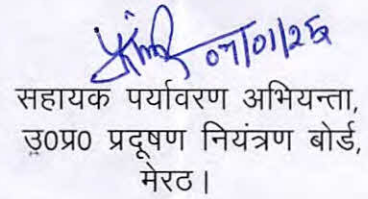 07/01/25
सहायक पर्यावरण अभियन्ता,
उ०प्र० प्रदूषण नियंत्रण बोर्ड,
मेरठ।